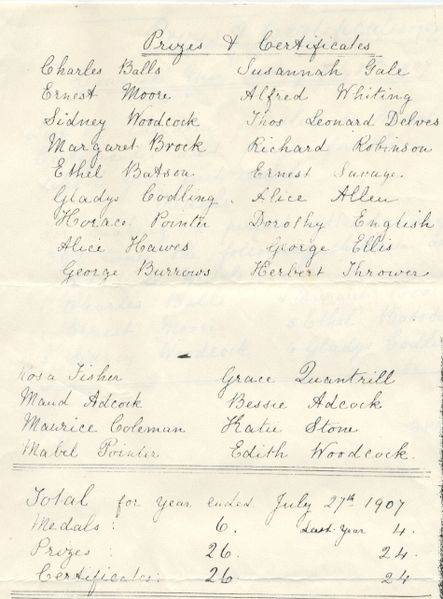 Prizes & Certificates
Charles Balls Susannah Gale
Ernest Moore Alfred Whiting
Sidney Woodcock Thos Leonard Delves
Margaret Brock Richard Robinson
Ethel Batson Ernest Savage
Gladys Codling. Alice Allen
Horace Pointer Dorothy English
Alice Hawes George Ellis
George Burrows Herbert Thrower
Rosa Fisher Grace Quantrill
Maud Adcock Bessie Adcock
Maurice Coleman Katie Stone
Mabel Pointer Edith Woodcock.
Total for year ended July 27th 1907
Medals: 6. Last Year 4.
Prizes: 26. 24.
Certificates: 26. 24